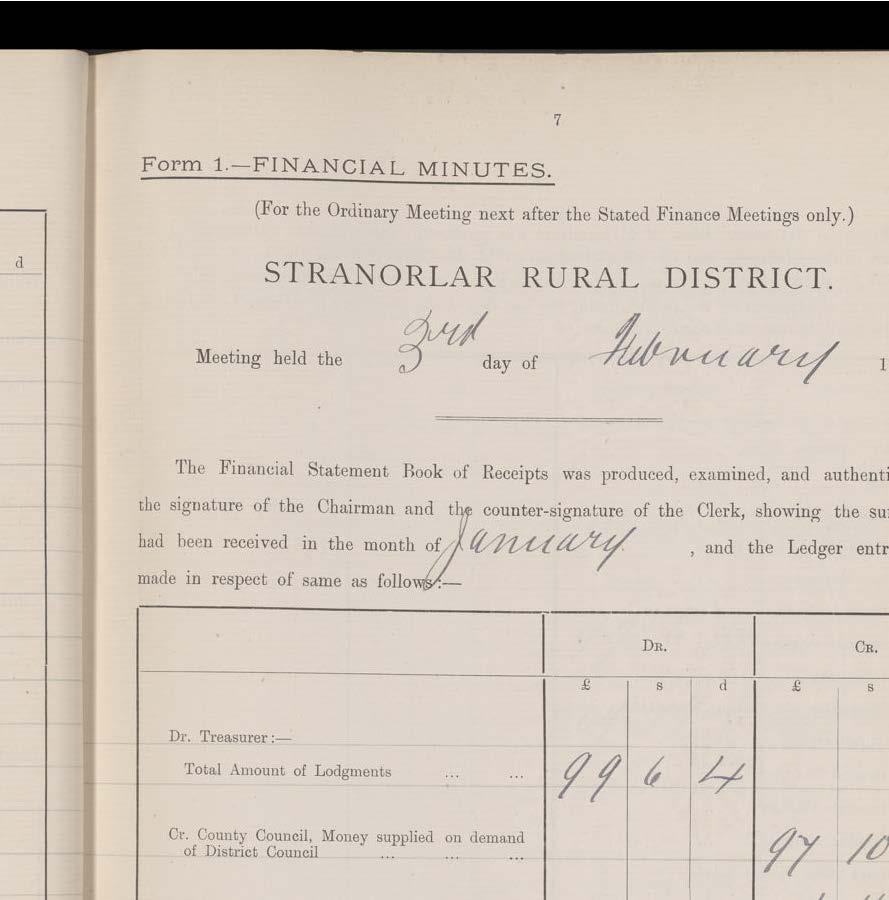 7
Form 1.—FINANCIAL MINUTES.
(For the Ordinary Meeting next after the Stated Finance Meetings only.)
d
STRANORLAR RURAL DISTRICT.
Meeting held the 3rd day of February 1
The Financial Statement Book of Receipts was produced, examined, and authenti
the signature of the Chairman and the counter-signature of the Clerk, showing the su
had been received in the month of January , and the Ledger entr
made in respect of same as follows:—
DR. CR.
£ s d £ s
Dr. Treasurer:—
Total Amount of Lodgments ... ... 99 6 4
Cr. County Council, Money supplied on demand
of District Council ... ... ... 97 10